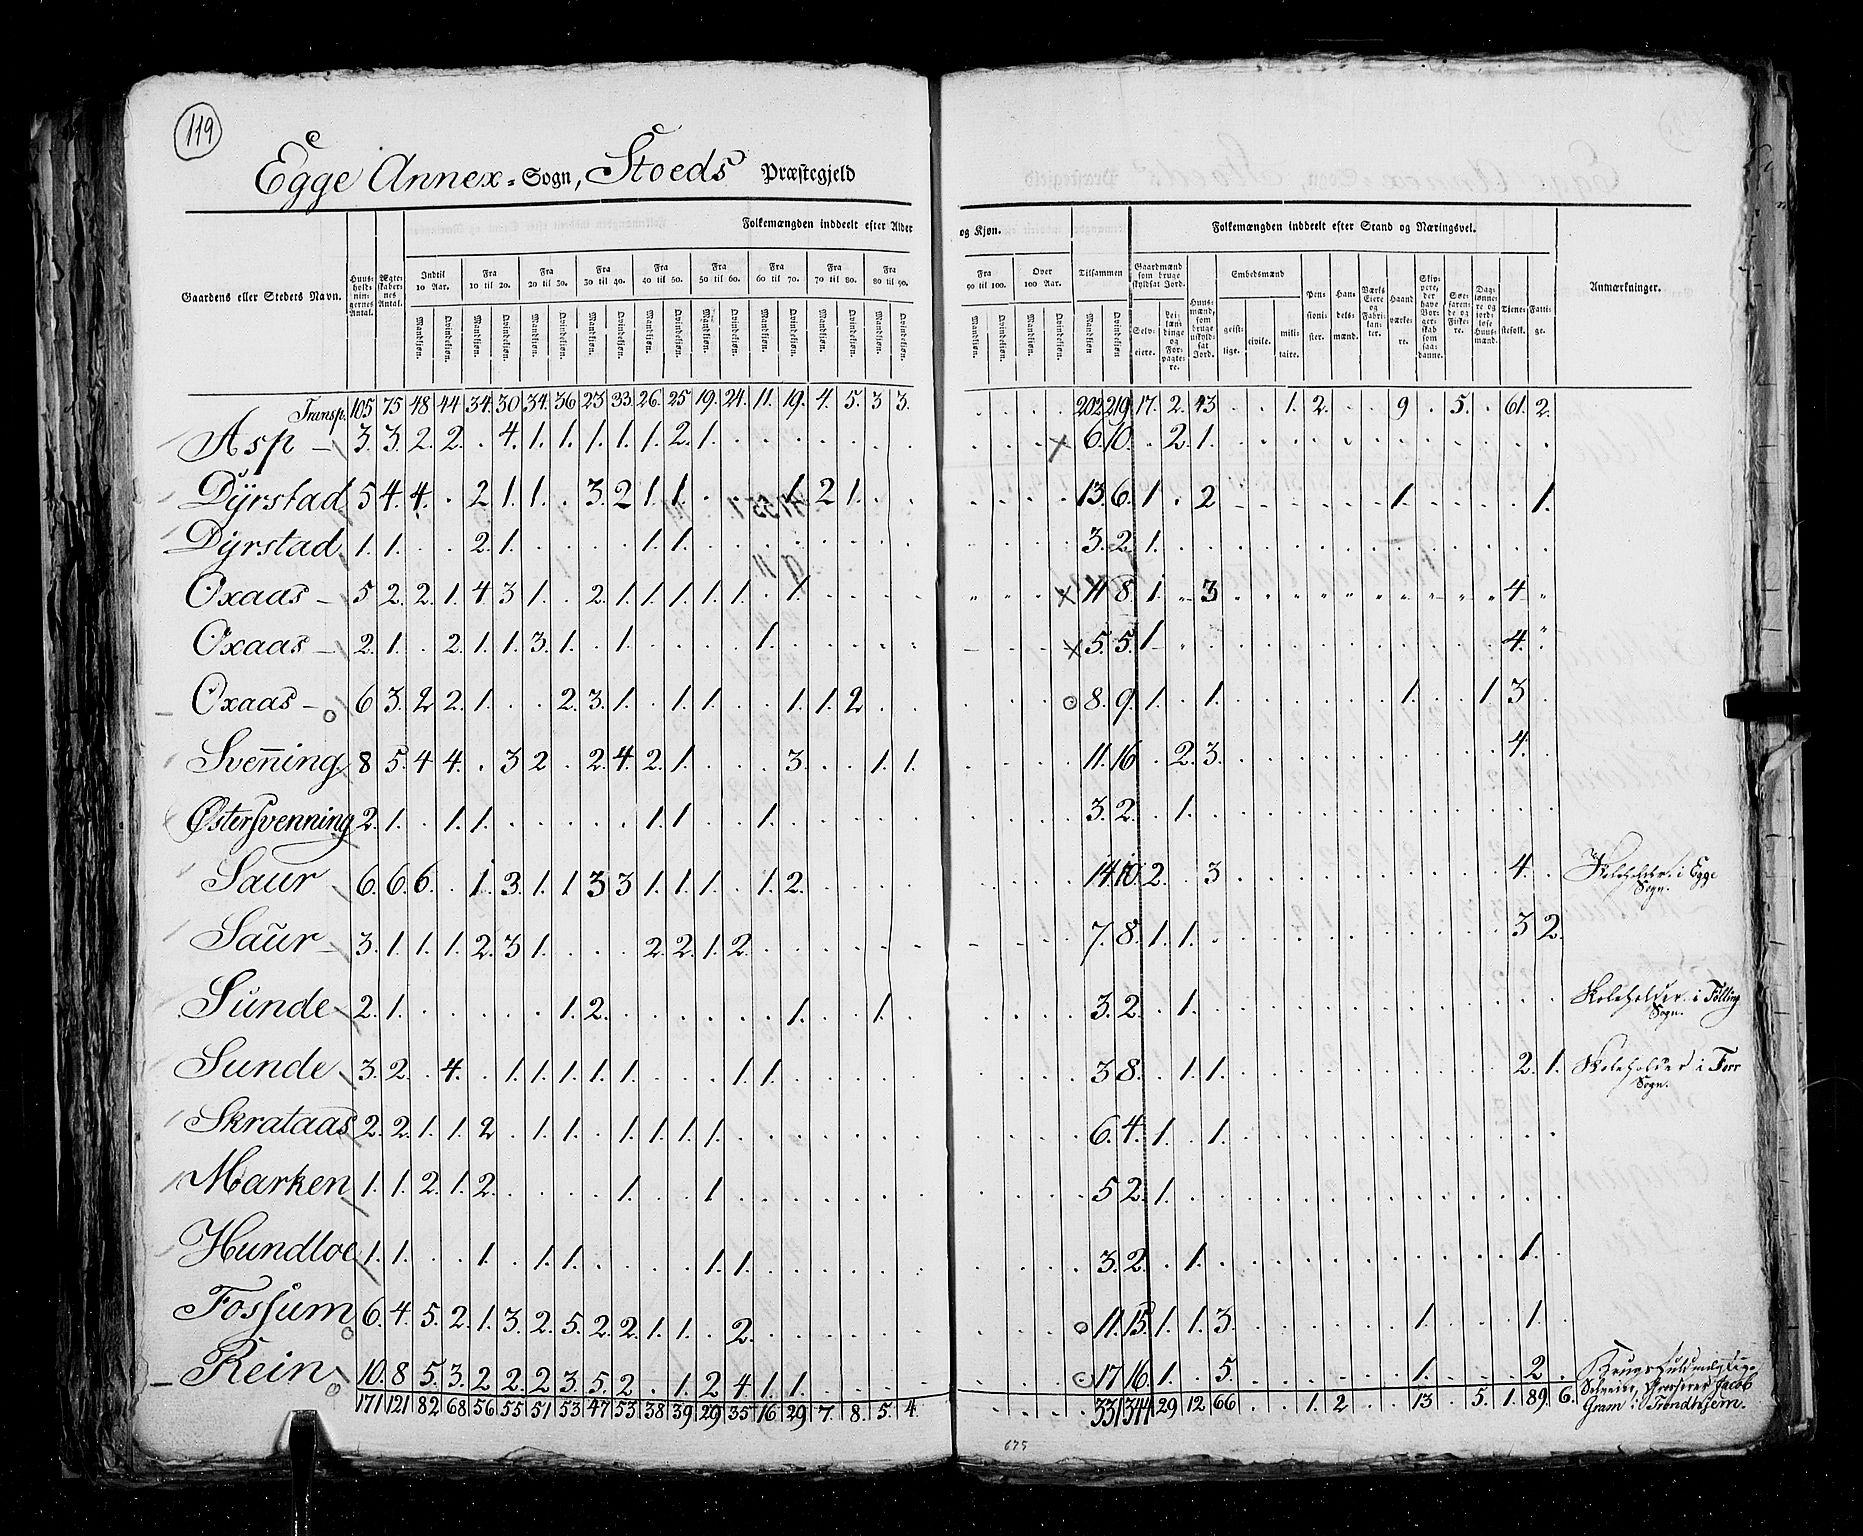 119
Egge Annex-Sogn, Stoeds Præstegjeld
Gaardens eller Stedets Navn. Huus-holdningernes Antal. Ægteskabernes Antal. Folkemængden inddeelt efter Alder og Kjøn. Folkemængden inddeelt efter Stand og Næringsvei. Anmærkninger.
Indtil 10 Aar. Fra 10 til 20. Fra 20 til 30. Fra 30 til 40. Fra 40 til 50. Fra 50 til 60. Fra 60 til 70. Fra 70 til 80. Fra 80 til 90. Fra 90 til 100. Over 100 Aar. Tilsammen
Gaardmænd som bruge skyldsat Jord. Selveiere. Leilændinge og Forpagtere. Huusmænd, som bruge uskyldsat Jord. Embedsmænd geistlige. civile. militaire. Pensionister. Handelsmænd. Værks Eiere og Fabrikanter. Haandværkere. Skippere, der have Borgerskab som saadanne. Søefarende og Fiskere. Daglønnere og jordløse Huusmænd. Tjenestefolk. Fattige.
Mandkjøn. Qvindekjøn. Mandkjøn. Qvindekjøn. Mandkjøn. Qvindekjøn. Mandkjøn. Qvindekjøn. Mandkjøn. Qvindekjøn. Mandkjøn. Qvindekjøn. Mandkjøn. Qvindekjøn. Mandkjøn. Qvindekjøn. Mandkjøn. Qvindekjøn. Mandkjøn. Qvindekjøn. Mandkjøn. Qvindekjøn. Mandkjøn Qvindekjøn
Transp. 105 75 48 44 34. 30 34. 36 23 33. 26. 25 19. 24. 11. 19. 4. 5. 3 3. . . . . 202 219. 17. 2. 43 . . 1. 2. . . 9 . 5. . 61. 2.
Asp — 3. 3. 2. 2. . 4. 1. 1. 1. 1. 1. 2. 1. . . . . . . . . . . x 6. 10. . 2. 1. . . . . . . . . . . . .
Dyrstad 5 4. 4. . 2 1. 1. . 3. 2 1. 1. . . . 1. 2 1. . . . . . . 13. 6. 1. . 2 . . . . . . 1. . . . . 1.
Dyrstad 1. 1. . . 2. 1. . . . . 1. 1. . . . . . . . . . . . . 3. 2. 1. . . . . . . . . . . . . . .
Oxaas — 5 2. 2. 1. 4. 3 1. . 2. 1. 1. 1. 1. 1. . 1. . . . . . . . x 11 8. 1. . 3 . . . . . . . . . . 4 .
Oxaas — 2. 1. . 2. 1. 1. 3. 1. . 1. . . . . 1. . . . . . . . . x 5. 5. 1 . . . . . . . . . . . . 4. .
Oxaas — o 6 3. 2 2. 1. . . 2. 3. 1. . 1. 1. . . 1. 1. 2 . . . . . o 8. 9. 1. . 1. . . . . . . 1. . . 1 3 .
Svenning 8 5. 4 4. . 3 2 . 2. 4. 2. 1. . . . 3. . . 1. 1. . . . . 11. 16 . 2. 3. . . . . . . . . . . 4. .
Østersvenning 2. 1. . 1. 1. . . . . . 1. 1. . . 1. . . . . . . . . . 3. 2. . 1. . . . . . . . . . . . . .
Saur 6. 6. 6. . 1. 3. 1. 1 3 3 1. 1. 1. . 1. 2. . . . . . . . . 14. 10. 2. . 3 . . . . . . . . . . 4. . Skoleholder i Egge
Sogn.
Saur — 3. 1. 1. 1. 2. 3 1. . . . 2 2. 1. 2. . . . . . . . . . . 7. 8. 1. 1. . . . . . . . . . . . 3 2.
Sunde 2. 1. . . . . . 1. 2. . . . . . . 1. . . 1. . . . . . 3. 2. . 1. . . . . . . . . . . . . . Skoleholder i Følling
Sogn.
Sunde 3. 2. . 4. . 1. 1. 1. 1. 1. . . . 1. 1. . . . . . . . . . 3 8. . 1. 1. . . . . . . . . . . 2. 1. Skoleholder i Forr
Sogn.
Skrataas 2. 2. 1. 1. 2 . 1. 1. . 1. 1. 1. 1. . . . . . . . . . . . 6. 4. 1. . 1. . . . . . . . . . . . .
Marken 1. 1. 2. 1. 2. . . . . 1. . . 1. . . . . . . . . . . . 5 2. 1. . . . . . . . . . . . . . .
Hundloe 1. 1. . . 1. . 1. 1. . . . . 1. 1. . . . . . . . . . . 3. 2. . 1. . . . . . . . . . . . 1. .
Fossum o 6. 4. 5. 2. 1. 3. 2. 5. 2. 2. 1. 1. . 2. . . . . . . . . . o 11. 15. 1. 1. 3. . . . . . . 1. . . . 1. .
Rein o 10. 8. 5. 3. 2 2. 2 3. 5. 2. . 1. 2 4. 1. 1. . . . . . . . o 17 16. 1. . 5. . . . . . . 1. . . . 2. .
Selveier, Jacob
171 121 82 68 56 55 51 53 47 53 38 39 29 35 16 29 7. 8. 5. 4. . . . . 331 344 29 12 66 . . 1. 2 . . 13 . 5. 1. 89. 6. Gram i Trondhjem.
675